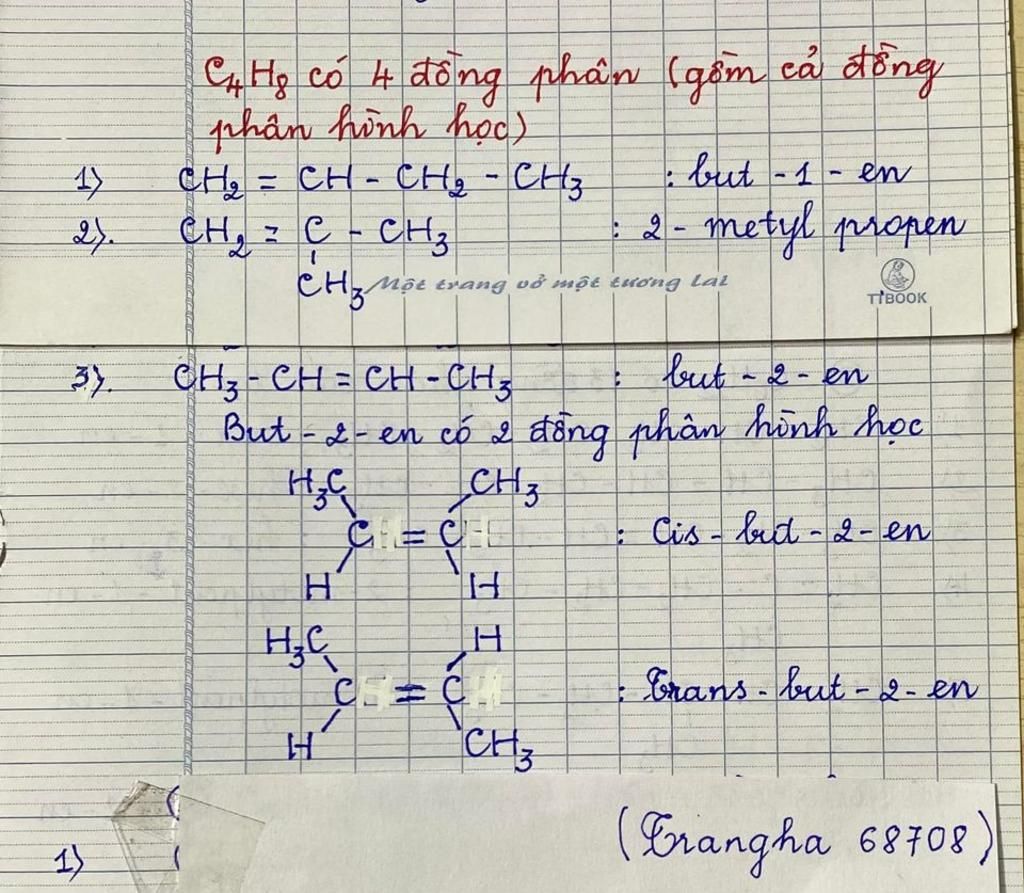 C₄H₈ có 4 đồng phân (gồm cả đồng
phân hình học)
1) CH₂ = CH - CH₂ - CH₃ : but - 1 - en
2). CH₂ = C - CH₃ : 2 - metyl propen
CH₃
Một trang vở một tương lai
TIBOOK
3). CH₃ - CH = CH - CH₃ : but - 2 - en
But - 2 - en có 2 đồng phân hình học
H₃C CH₃
C = C : Cis - but - 2 - en
H H
H₃C H
C = C : Trans - but - 2 - en
H CH₃
(Trangha 68708)
1)